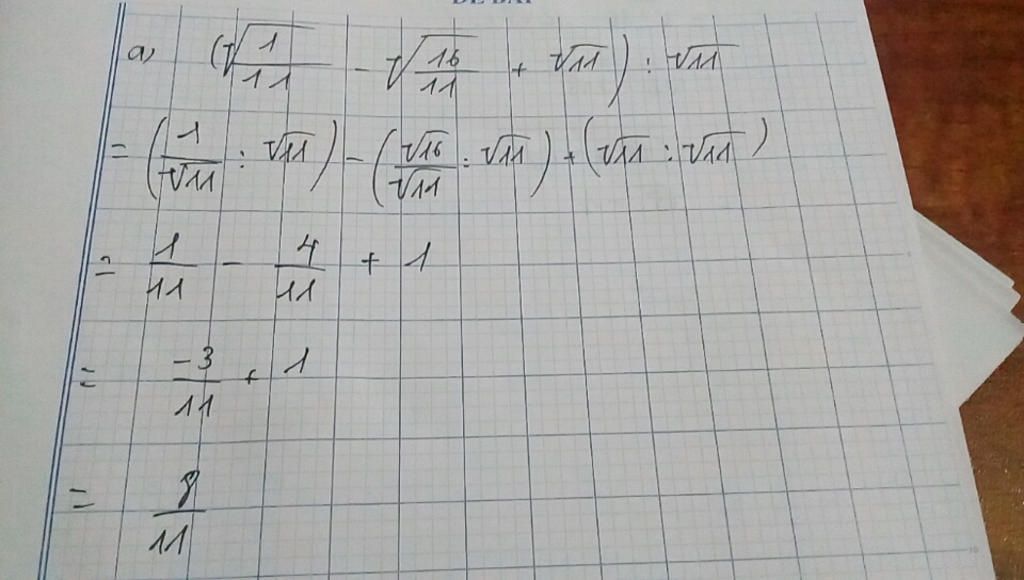 a) (√(1/11) - √(16/11) + √11) : √11
= (1/√11 : √11) - (√16/√11 : √11) + (√11 : √11)
= 1/11 - 4/11 + 1
= -3/11 + 1
= 8/11